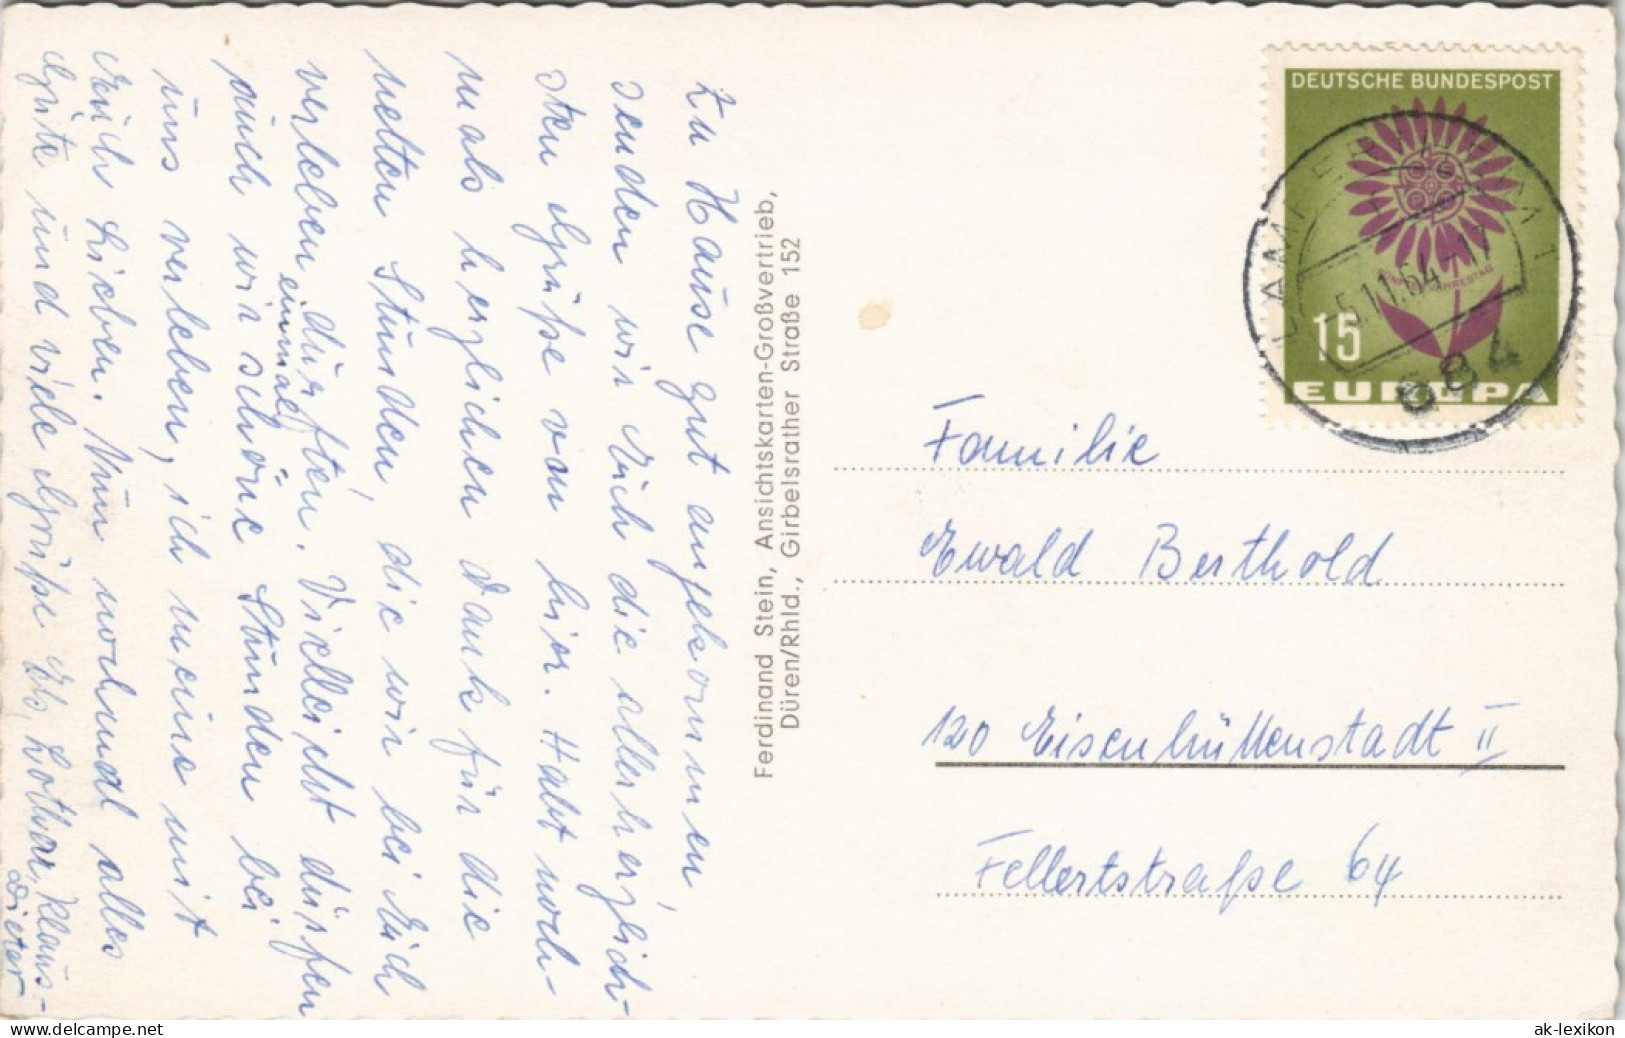 Zu Hause gut angekommen,
senden wir Euch die allerherzlich-
sten Grüße von hier. Habt noch-
mals herzlichen Dank für die
netten Stunden, die wir bei Euch
verleben durften. Vielleicht dürfen
einmal
auch wir schöne Stunden bei
uns verleben, ich meine mit
Euch Lieben. Nun nochmal alles
Gute und viele Grüße Els, Lothar, Klaus-
Dieter
Ferdinand Stein, Ansichtskarten-Großvertrieb,
Düren/Rhld., Girbelsrather Straße 152
DEUTSCHE BUNDESPOST
15
EUROPA
-5.11.64-17
684
Familie
Ewald Berthold
120 Eisenhüttenstadt II
Fellertstraße 64
www.delcampe.net
ak-lexikon